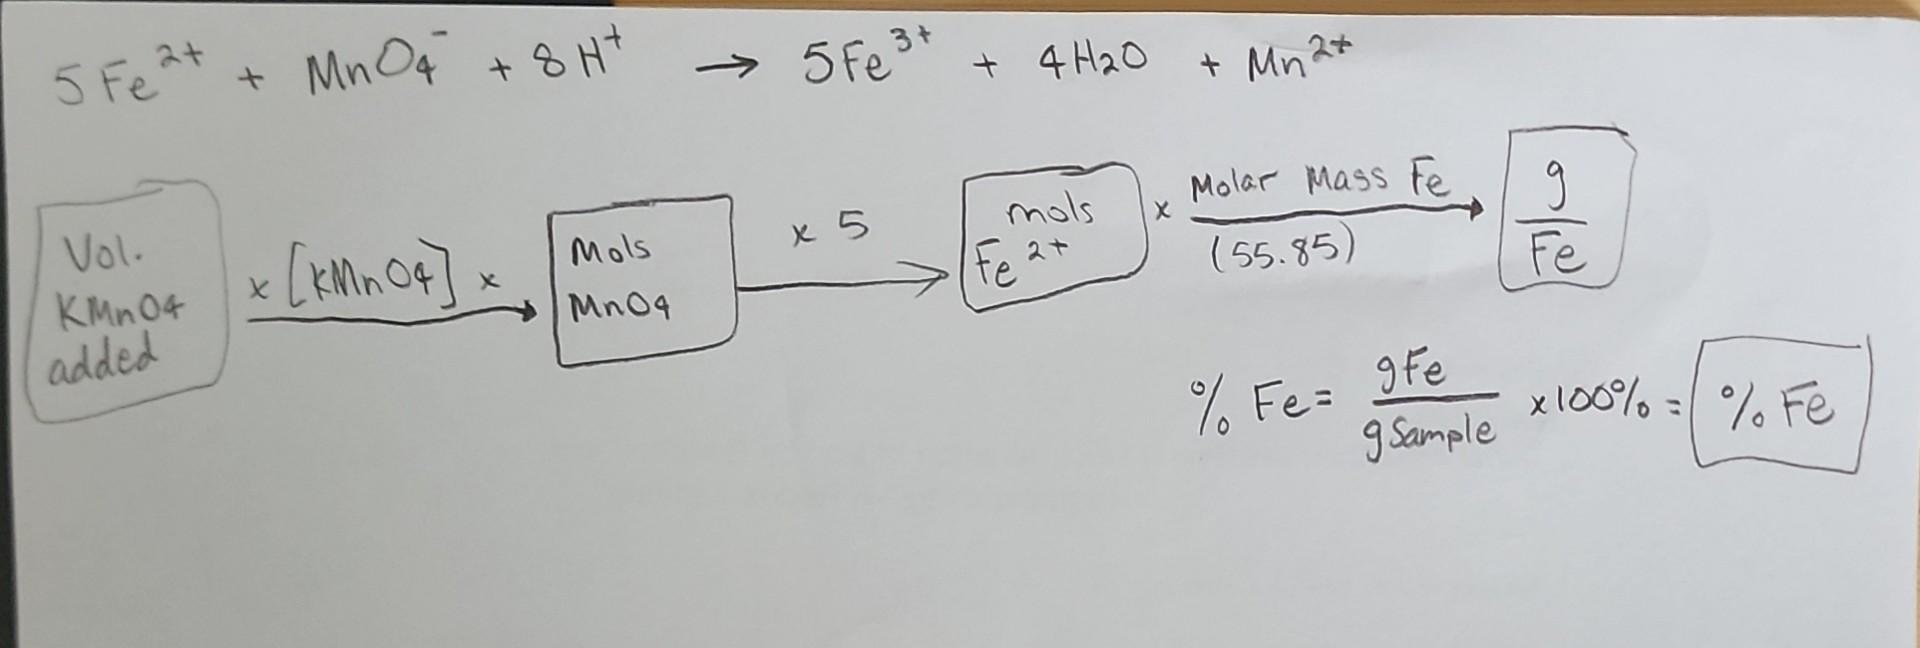 5Fe²⁺ + MnO₄⁻ + 8H⁺ → 5Fe³⁺ + 4H₂O + Mn²⁺
Vol.
KMnO₄
added
x [KMnO₄] x
Mols
MnO₄
x 5
mols
Fe²⁺
x Molar Mass Fe
(55.85)
g
Fe
% Fe = gFe / gSample x100% = % Fe